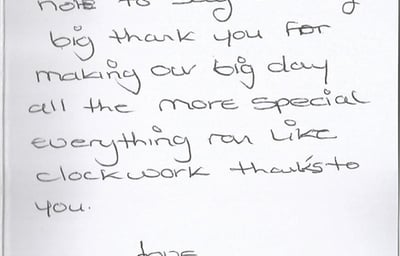 note to say
big thank you for
making our big day
all the more special
everything ran like
clockwork thanks to
you.
love